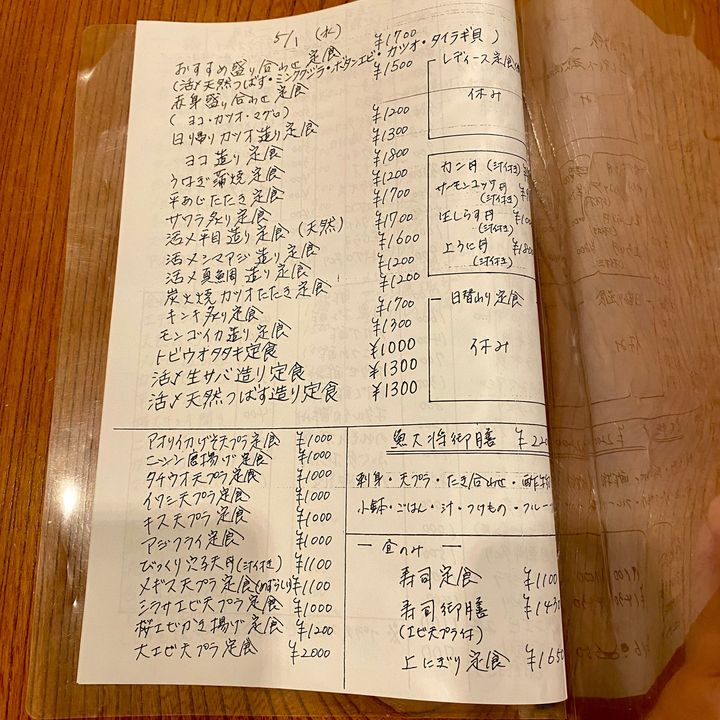 5/1 (水)
おすすめ盛り合わせ定食 ¥1700
(活〆天然つばす・ミンククジラ・ボタンエビ・カツオ・タイラギ貝)
赤身盛り合わせ定食 ¥1500
(ヨコ・カツオ・マグロ)
日り造り定食 ¥1200
ヨコ造り定食 ¥1300
うなぎ蒲焼定食 ¥1800
平あじたたき定食 ¥1200
サワラ炙り定食 ¥1700
活〆平目造り定食(天然) ¥1700
活〆シマアジ造り定食 ¥1600
活〆真鯛造り定食 ¥1200
炭火焼カツオたたき定食 ¥1200
キンキ炙り定食 ¥1700
モンゴイカ造り定食 ¥1300
トビウオタタキ定食 ¥1000
活〆生サバ造り定食 ¥1300
活〆天然つばす造り定食 ¥1300
レディース定食
休み
カニ丼(汁付き)
サーモンユッケ丼
(汁付き)
生しらす丼
(汁付き)
上うに丼 ¥180
(汁付き)
日替わり定食
休み
アオリイカげそ天プラ定食 ¥1000
ニシン唐揚げ定食 ¥1000
タチウオ天プラ定食 ¥1000
イワシ天プラ定食 ¥1000
キス天プラ定食 ¥1000
アジフライ定食 ¥1000
びっくり穴子天丼(汁付き) ¥1100
メギス天プラ定食(めずらしい) ¥1100
シラサエビ天プラ定食 ¥1000
桜エビかき揚げ定食 ¥1200
大エビ天プラ定食 ¥2000
魚大将御膳 ¥220
刺身・天プラ・たき合わせ・酢の物
小鉢・ごはん・汁・つけもの・フルーツ
昼のみ
寿司定食 ¥1100
寿司御膳 ¥1430
(エビ天プラ付)
上にぎり定食 ¥1650